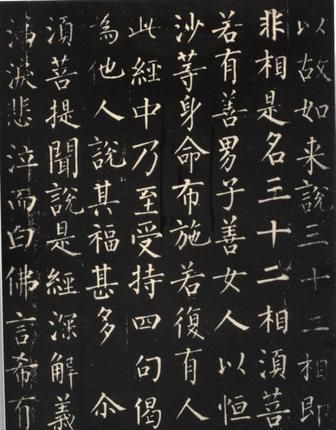 以故如来說三十二相即
非相是名三十二相須菩
若有善男子善女人以恒
沙等身命布施若復有人
此經中乃至受持四句偈
為他人說其福甚多 尒
須菩提聞說是經深解義
涕淚悲泣而白佛言希有